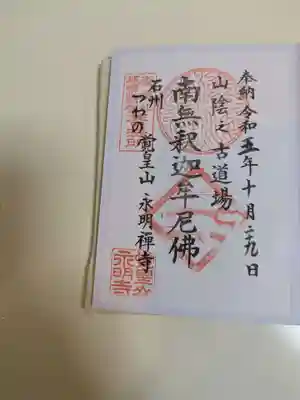 奉納 令和五年十月二十九日
山陰之古道場
南無釈迦牟尼佛
石州
つわの
覚皇山 永明禅寺
永明寺